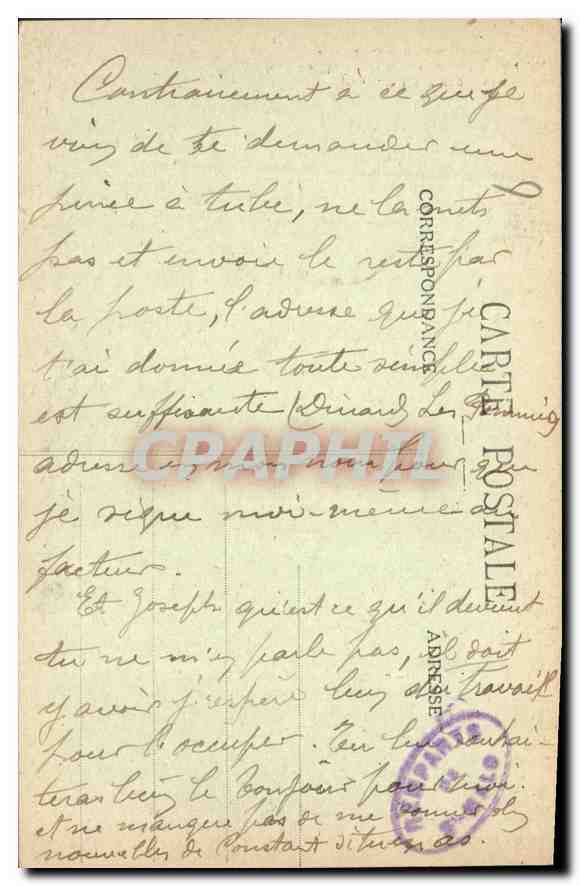 Contrairement à ce que je
viens de te demander une
pince à tube, ne la mets
pas et envoie le reste par
la poste, l'adresse que je
t'ai donnée toute simple
est suffisante (Dinard Les
adresse en mon nom pour que
je signe moi-même au
facteur.
Et Joseph qu'est ce qu'il devient
tu ne m'en parle pas, il doit
y avoir j'espère bien du travail
pour l'occuper. Tu lui souhai-
teras bien le bonjour pour moi.
et ne manque pas de me donner des
nouvelles de Constant si tu en as.
CARTE POSTALE
CORRESPONDANCE
ADRESSE
CPAPHIL